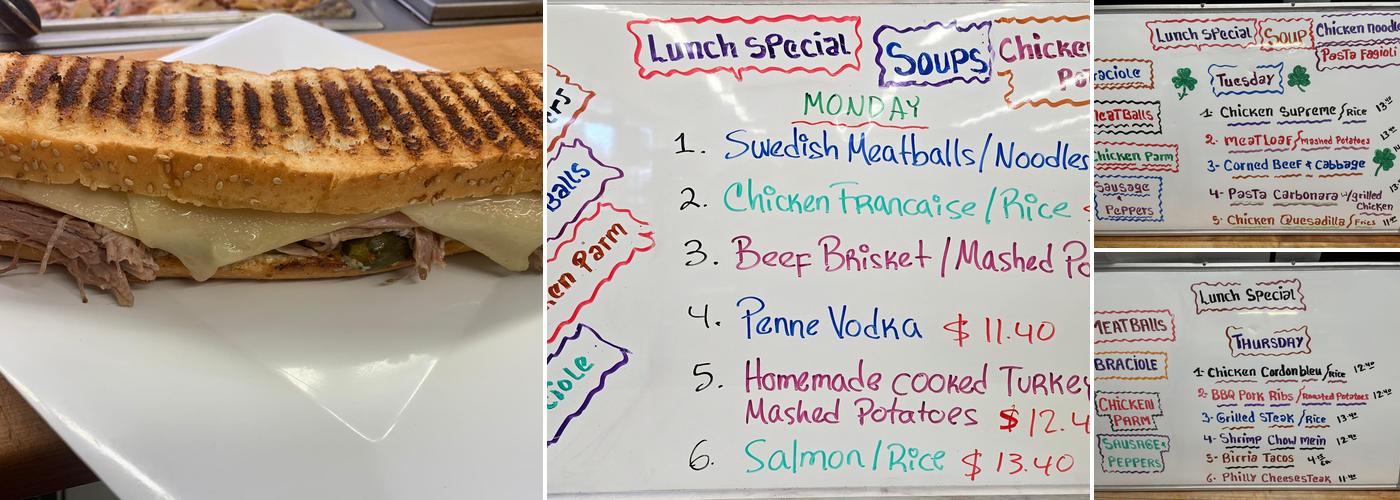 Lunch Special
Soups
Chicken
MONDAY
1. Swedish Meatballs/Noodles
2. Chicken Francaise/Rice
3. Beef Brisket/Mashed
4. Penne Vodka $11.40
5. Homemade cooked Turkey
Mashed Potatoes $12.4
6. Salmon/Rice $13.40
Balls
Parm
Lunch Special
Soup
Chicken Noodle
Pasta Fagioli
Tuesday
1- Chicken Supreme/Rice
2- Meatloaf/Mashed Potatoes
3- Corned Beef & Cabbage
4- Pasta Carbonara w/grilled
Chicken
5- Chicken Quesadilla/Fries
raciole
MeatBalls
Chicken Parm
Sausage
Peppers
Lunch Special
THURSDAY
1- Chicken Cordonbleu/Rice 12.40
2- BBQ Pork Ribs/Roasted Potatoes 12.40
3- Grilled Steak/Rice 13.40
4- Shrimp Chow mein 12.40
5- Birria Tacos
6- Philly CheeseSteak
MEATBALLS
BRACIOLE
CHICKEN
PARM
SAUSAGE
PEPPERS